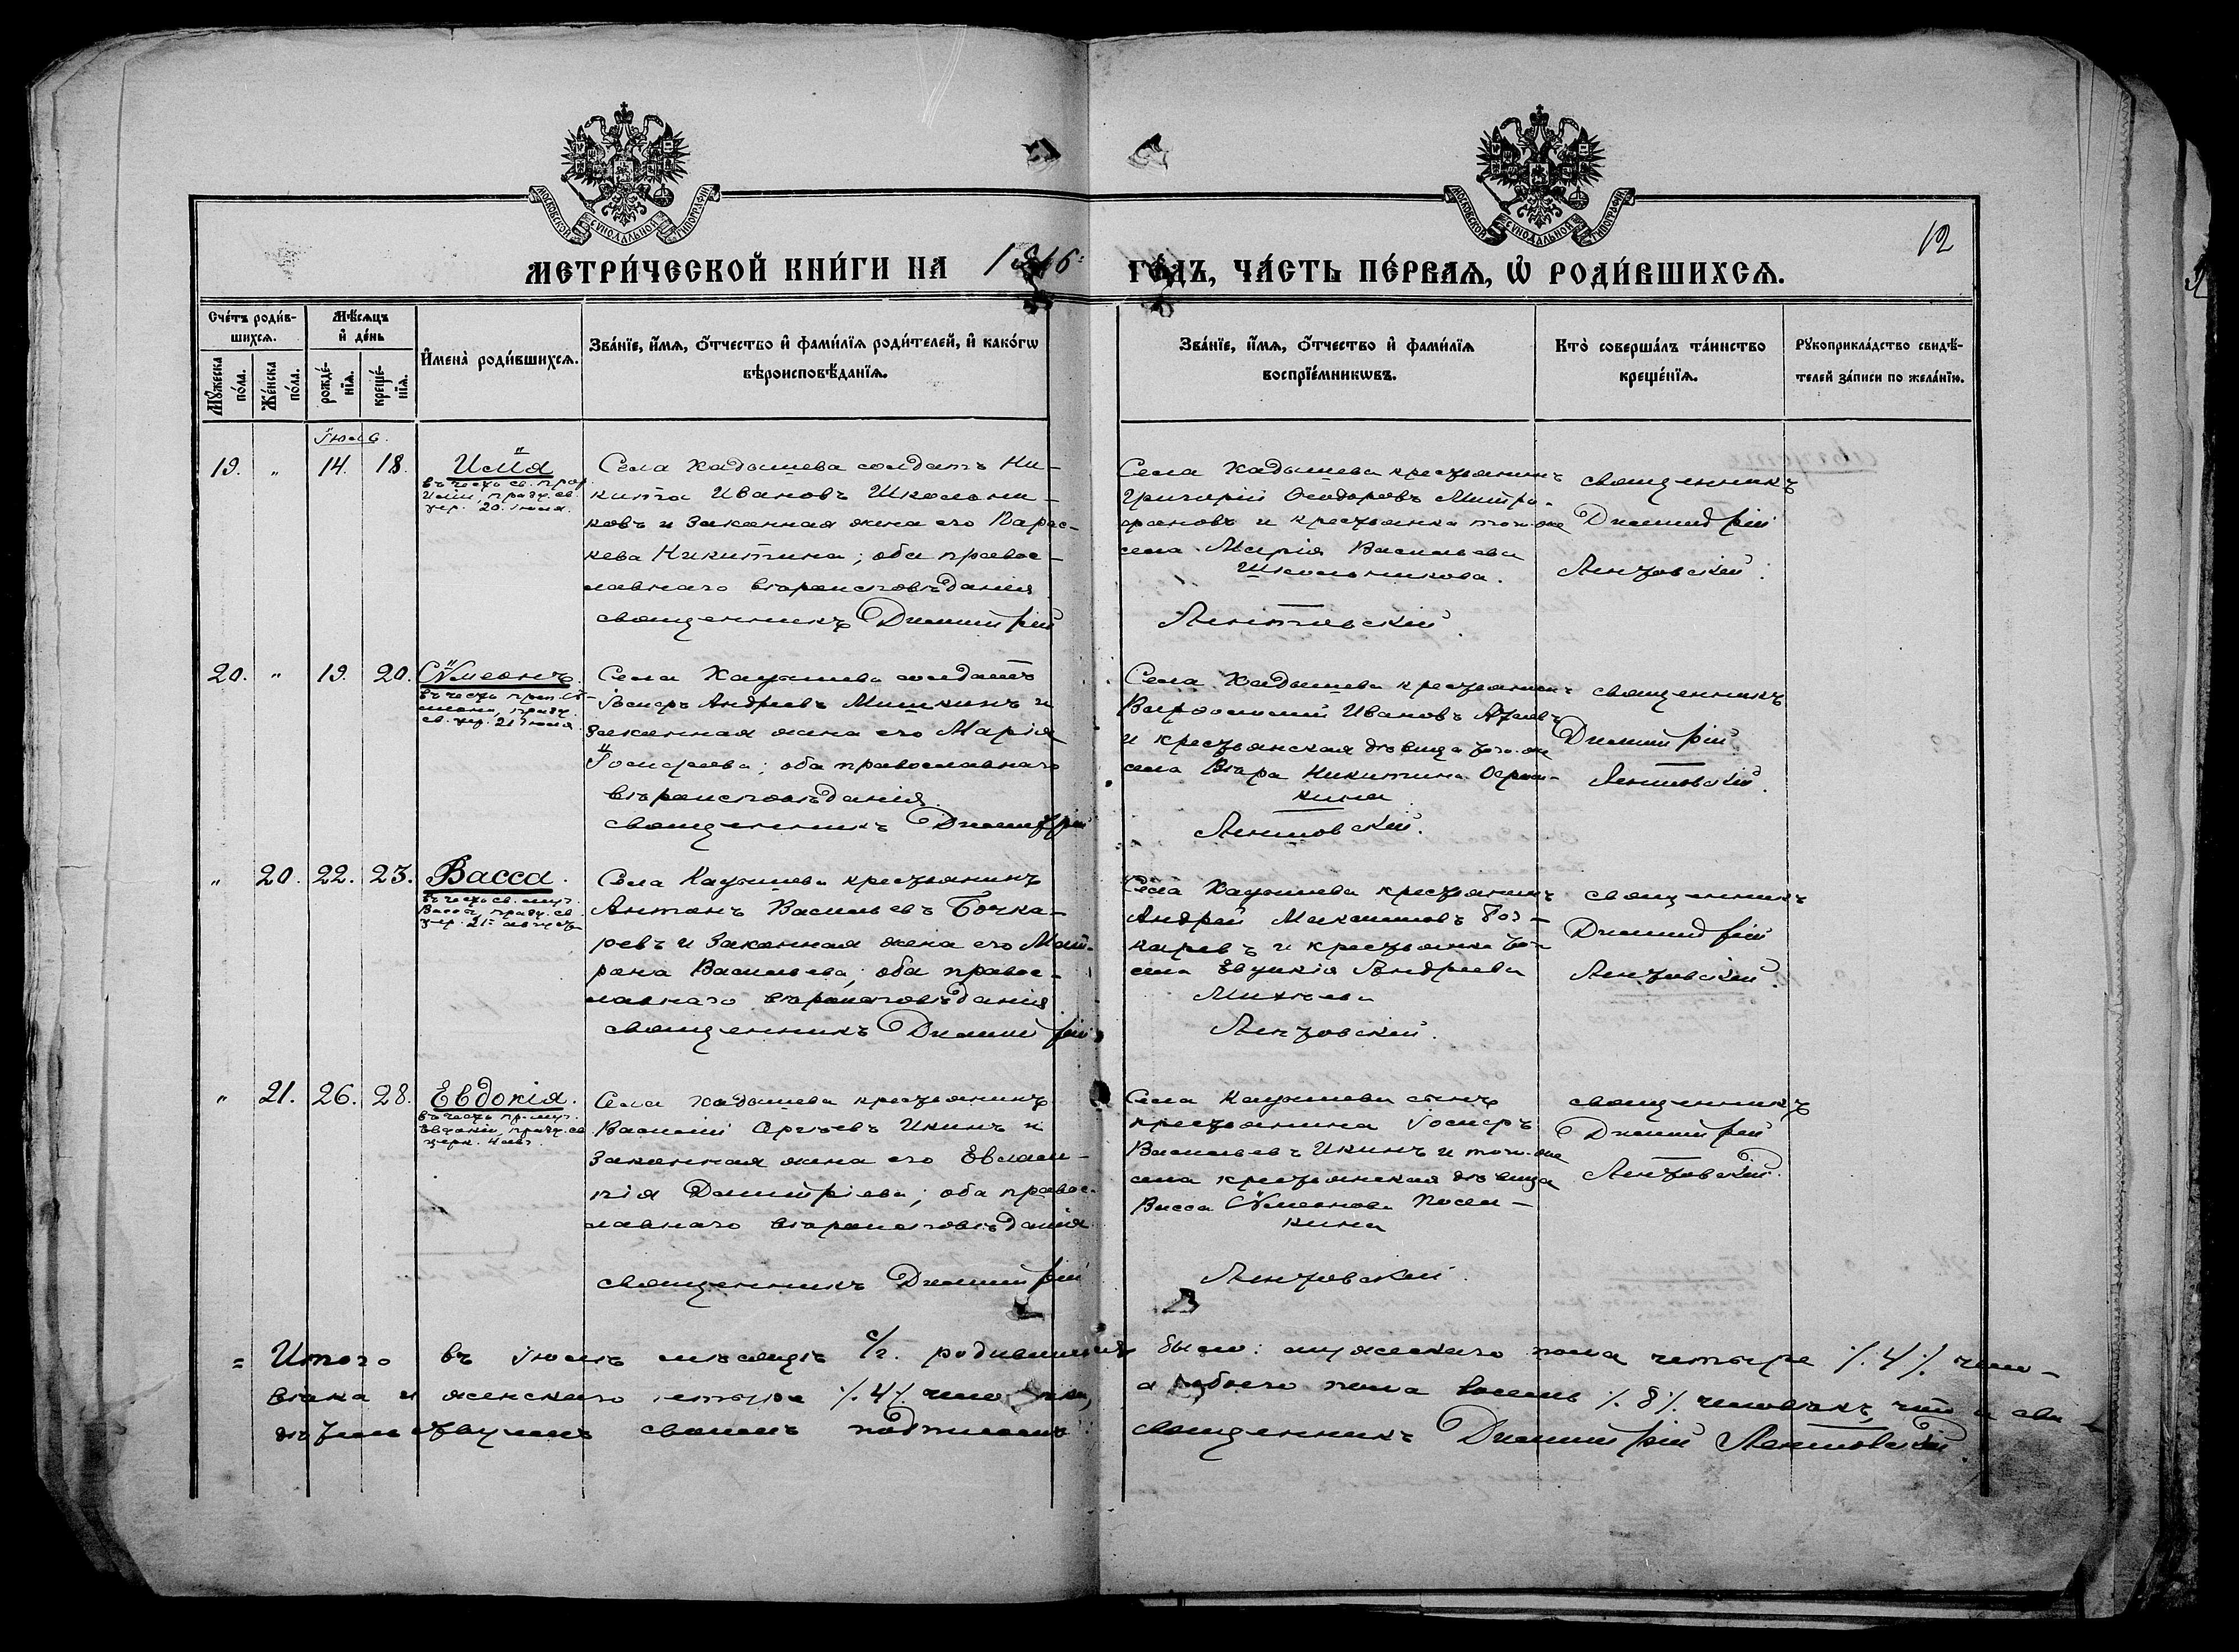 МОСКОВСКОЙ СУНОДАЛЬНОЙ ТИПОГРАФИИ
МОСКОВСКОЙ СУНОДАЛЬНОЙ ТИПОГРАФИИ
12
МЕТРИ́ЧЕСКОЙ КНИ́ГИ НА 1916: ГО́ДЪ, ЧА́СТЬ ПЕ́РВАѦ, Ѡ РОДИ́ВШИХСѦ.
Сче́тъ роди́в-
шихсѧ.
Мꙋжеска по́ла.
Же́нска по́ла.
Мѣ́сѧцъ
и҆ де́нь
рожде́-
нїѧ.
креще́-
нїѧ.
И҆мена̀ роди́вшихсѧ.
Зва́нїе, и҆́мѧ, ѻ҆́тчество и҆ фами́лїѧ роди́телей, и҆ како́гѡ
вѣроисповѣ́данїѧ.
Зва́нїе, и҆́мѧ, ѻ҆́тчество и҆ фами́лїѧ
воспрїе́мникѡвъ.
Кто̀ соверша́лъ та́инство
креще́нїѧ.
Рꙋкоприкла́дство свидѣ́-
телей за́писи по жела́нїю.
Іюль
19. " 14. 18. Илія
въ честь св. прор.
Иліи, празд. св.
цер. 20. іюля.
Села Кадышева солдатъ Ни-
кита Ивановъ Школьни-
ковъ и законная жена его Парас-
кева Никитина; оба правос-
лавнаго вѣроисповѣданія
священникъ Димитрій
Села Кадышева крестьянинъ
Григорій Ѳеодоровъ Митро-
фановъ и крестьянка того-же
села Марія Васильева
Школьникова.
Лентовскій.
священникъ
Димитрій
Лентовскій.
20. " 19. 20. Сѵмеонъ.
въ честь преп. Сѵ-
меона, празд.
св. цер. 21 іюля.
Села Кадышева солдатъ
Іосифъ Андреевъ Мишкинъ и
законная жена его Марія
Іосифова; оба православнаго
вѣроисповѣданія.
священникъ Димитрій
Села Кадышева крестьянинъ
Варѳоломей Ивановъ
и крестьянская дѣвица того-же
села Вѣра Никитина
кина
Лентовскій.
священникъ
Димитрій
Лентовскій.
" 20. 22. 23. Васса.
въ честь св. муч.
Вассы, празд. св.
цер. 21 августа
Села Кадышева крестьянинъ
Антонъ Васильевъ Бочка-
ревъ и законная жена его Мат-
рона Васильева; оба правос-
лавнаго вѣроисповѣданія
священникъ Димитрій
Села Кадышева крестьянинъ
Андрей Максимовъ Боч-
каревъ и крестьянка того
села Евдокія Андреева
Михеева
Лентовскій.
священникъ
Димитрій
Лентовскій.
" 21. 26. 28. Евдокія.
въ честь пр. муч.
Евдокіи, празд. св.
церк. 4 авг.
Села Кадышева крестьянинъ
Василій Сергѣевъ Икинъ и
законная жена его Евлам-
пія Димитріева; оба правос-
лавнаго вѣроисповѣданія
священникъ Димитрій
Села Кадышева сынъ
крестьянина Іосифъ
Васильевъ Икинъ и того-же
села крестьянская дѣвица
Васса Сѵмеонова
кина
Лентовскій.
священникъ
Димитрій
Лентовскій.
= Итого въ іюлѣ мѣсяцѣ с/г. родившихся было: мужескаго пола четыре /.4/. чело-
вѣка и женскаго четыре /.4/. человѣка, а обоего пола восемь /.8/. человѣкъ, что и сви-
дѣтельствуемъ своимъ подписомъ: священникъ Димитрій Лентовскій.